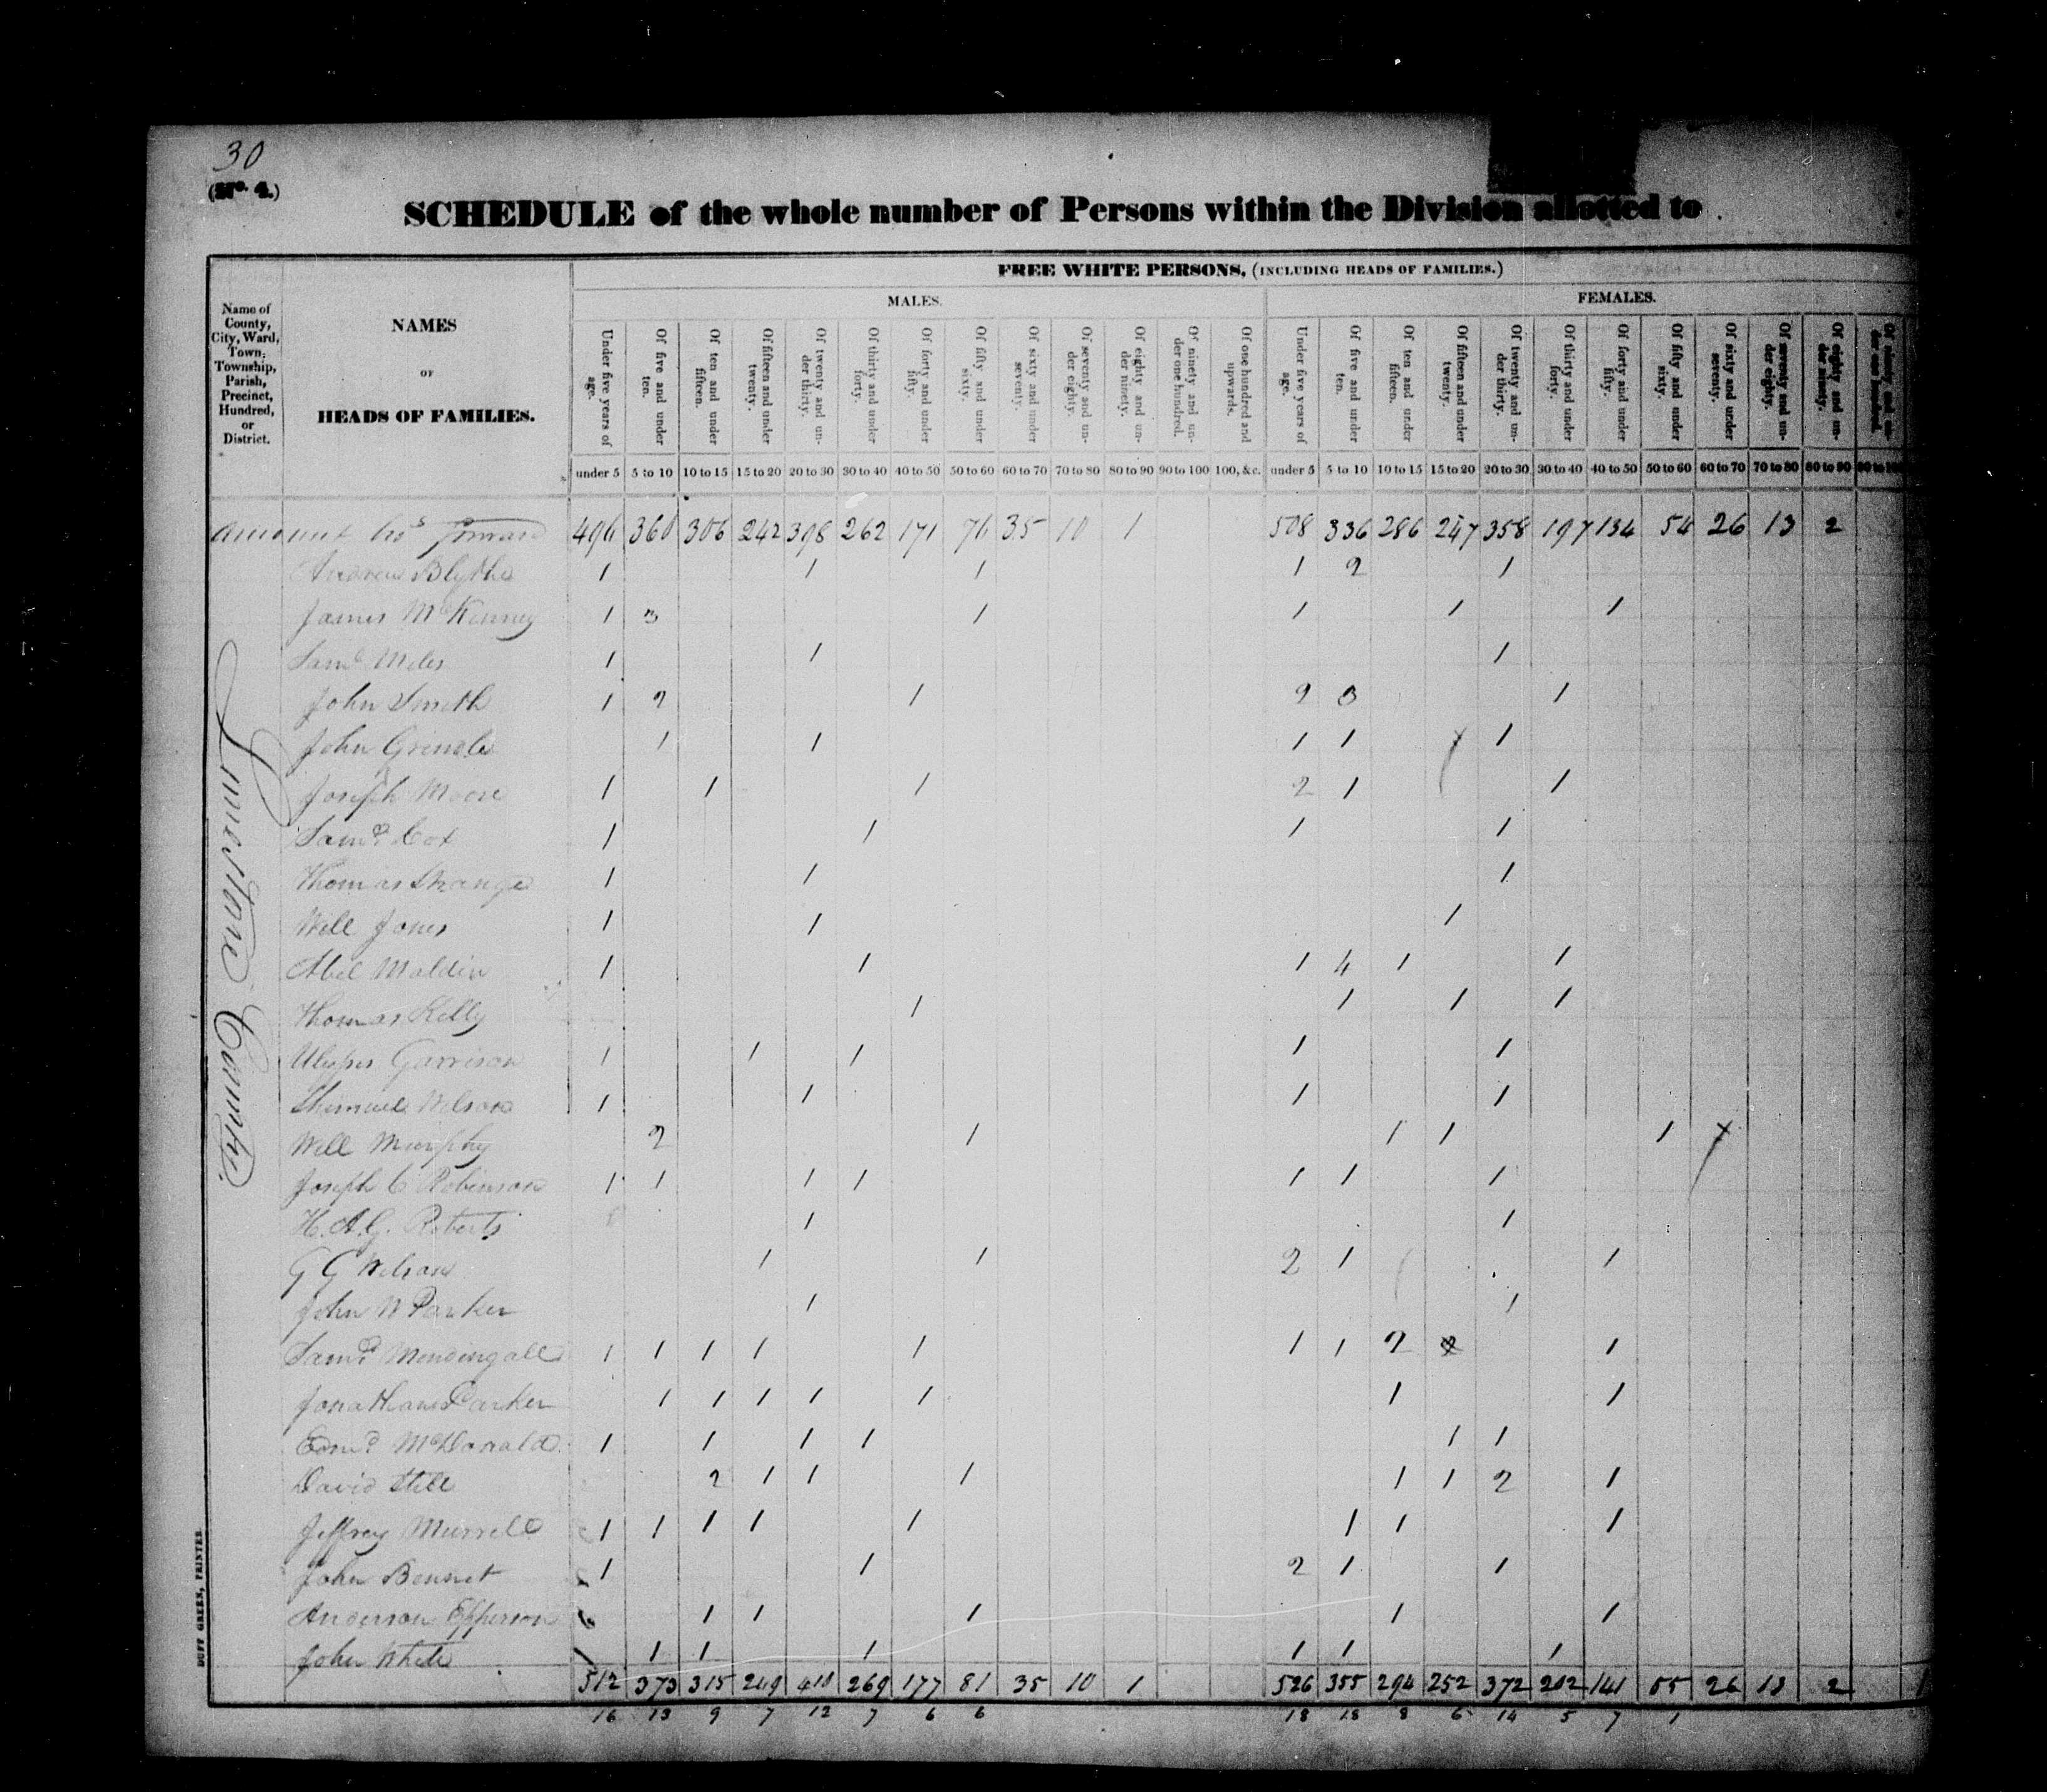 30
(No. 4.)
SCHEDULE of the whole number of Persons within the Division allotted to
FREE WHITE PERSONS, (INCLUDING HEADS OF FAMILIES.)
MALES. FEMALES.
Name of County, City, Ward, Town, Township, Parish, Precinct, Hundred, or District.
NAMES
OF
HEADS OF FAMILIES.
Under five years of age. Of five and under ten. Of ten and under fifteen. Of fifteen and under twenty. Of twenty and under thirty. Of thirty and under forty. Of forty and under fifty. Of fifty and under sixty. Of sixty and under seventy. Of seventy and under eighty. Of eighty and under ninety. Of ninety and under one hundred. Of one hundred and upwards. Under five years of age. Of five and under ten. Of ten and under fifteen. Of fifteen and under twenty. Of twenty and under thirty. Of thirty and under forty. Of forty and under fifty. Of fifty and under sixty. Of sixty and under seventy. Of seventy and under eighty. Of eighty and under ninety. Of ninety and under one hundred.
under 5 5 to 10 10 to 15 15 to 20 20 to 30 30 to 40 40 to 50 50 to 60 60 to 70 70 to 80 80 to 90 90 to 100 100, &c. under 5 5 to 10 10 to 15 15 to 20 20 to 30 30 to 40 40 to 50 50 to 60 60 to 70 70 to 80 80 to 90 90 to 100
amount bro forward 496 360 306 242 398 262 171 76 35 10 1 508 336 286 247 358 197 134 54 26 13 2
Andrew Blythe 1 1 1 1 2 1
James McKinney 1 3 1 1 1 1
Saml Miles 1 1 1
John Smith 1 2 1 2 3 1
John Grindle 1 1 1 1 1
Joseph Moore 1 1 1 2 1 1
Saml Cox 1 1 1 1
Thomas Strange 1 1 1
Will Jones 1 1 1
Abel Maldin 1 1 1 4 1 1
Thomas Kelly 1 1 1 1
Ulysses Garrison 1 1 1 1 1
Shemuel Wilson 1 1 1 1
Will Murphy 2 1 1 1 1
Joseph C Robinson 1 1 1 1 1 1 1
H. A. G. Roberts 1 1
G G Wilson 1 1 2 1 1
John W Parker 1 1
Saml Mendingall 1 1 1 1 1 1 1 2 2 1
Jonathan Parker 1 1 1 1 1 1 1
Edmd McDonald 1 1 1 1 1 1
David Still 2 1 1 1 1 1 2 1
Jeffrey Murrell 1 1 1 1 1 1 1 1
John Bennet 1 1 2 1 1
Anderson Epperson 1 1 1 1 1
John White 1 1 1 1 1 1 1
512 373 315 249 410 269 177 81 35 10 1 526 355 294 252 372 202 141 55 26 13 2
16 13 9 7 12 7 6 6 18 18 8 6 14 5 7 1
Limestone County.
DUFF GREEN, PRINTER